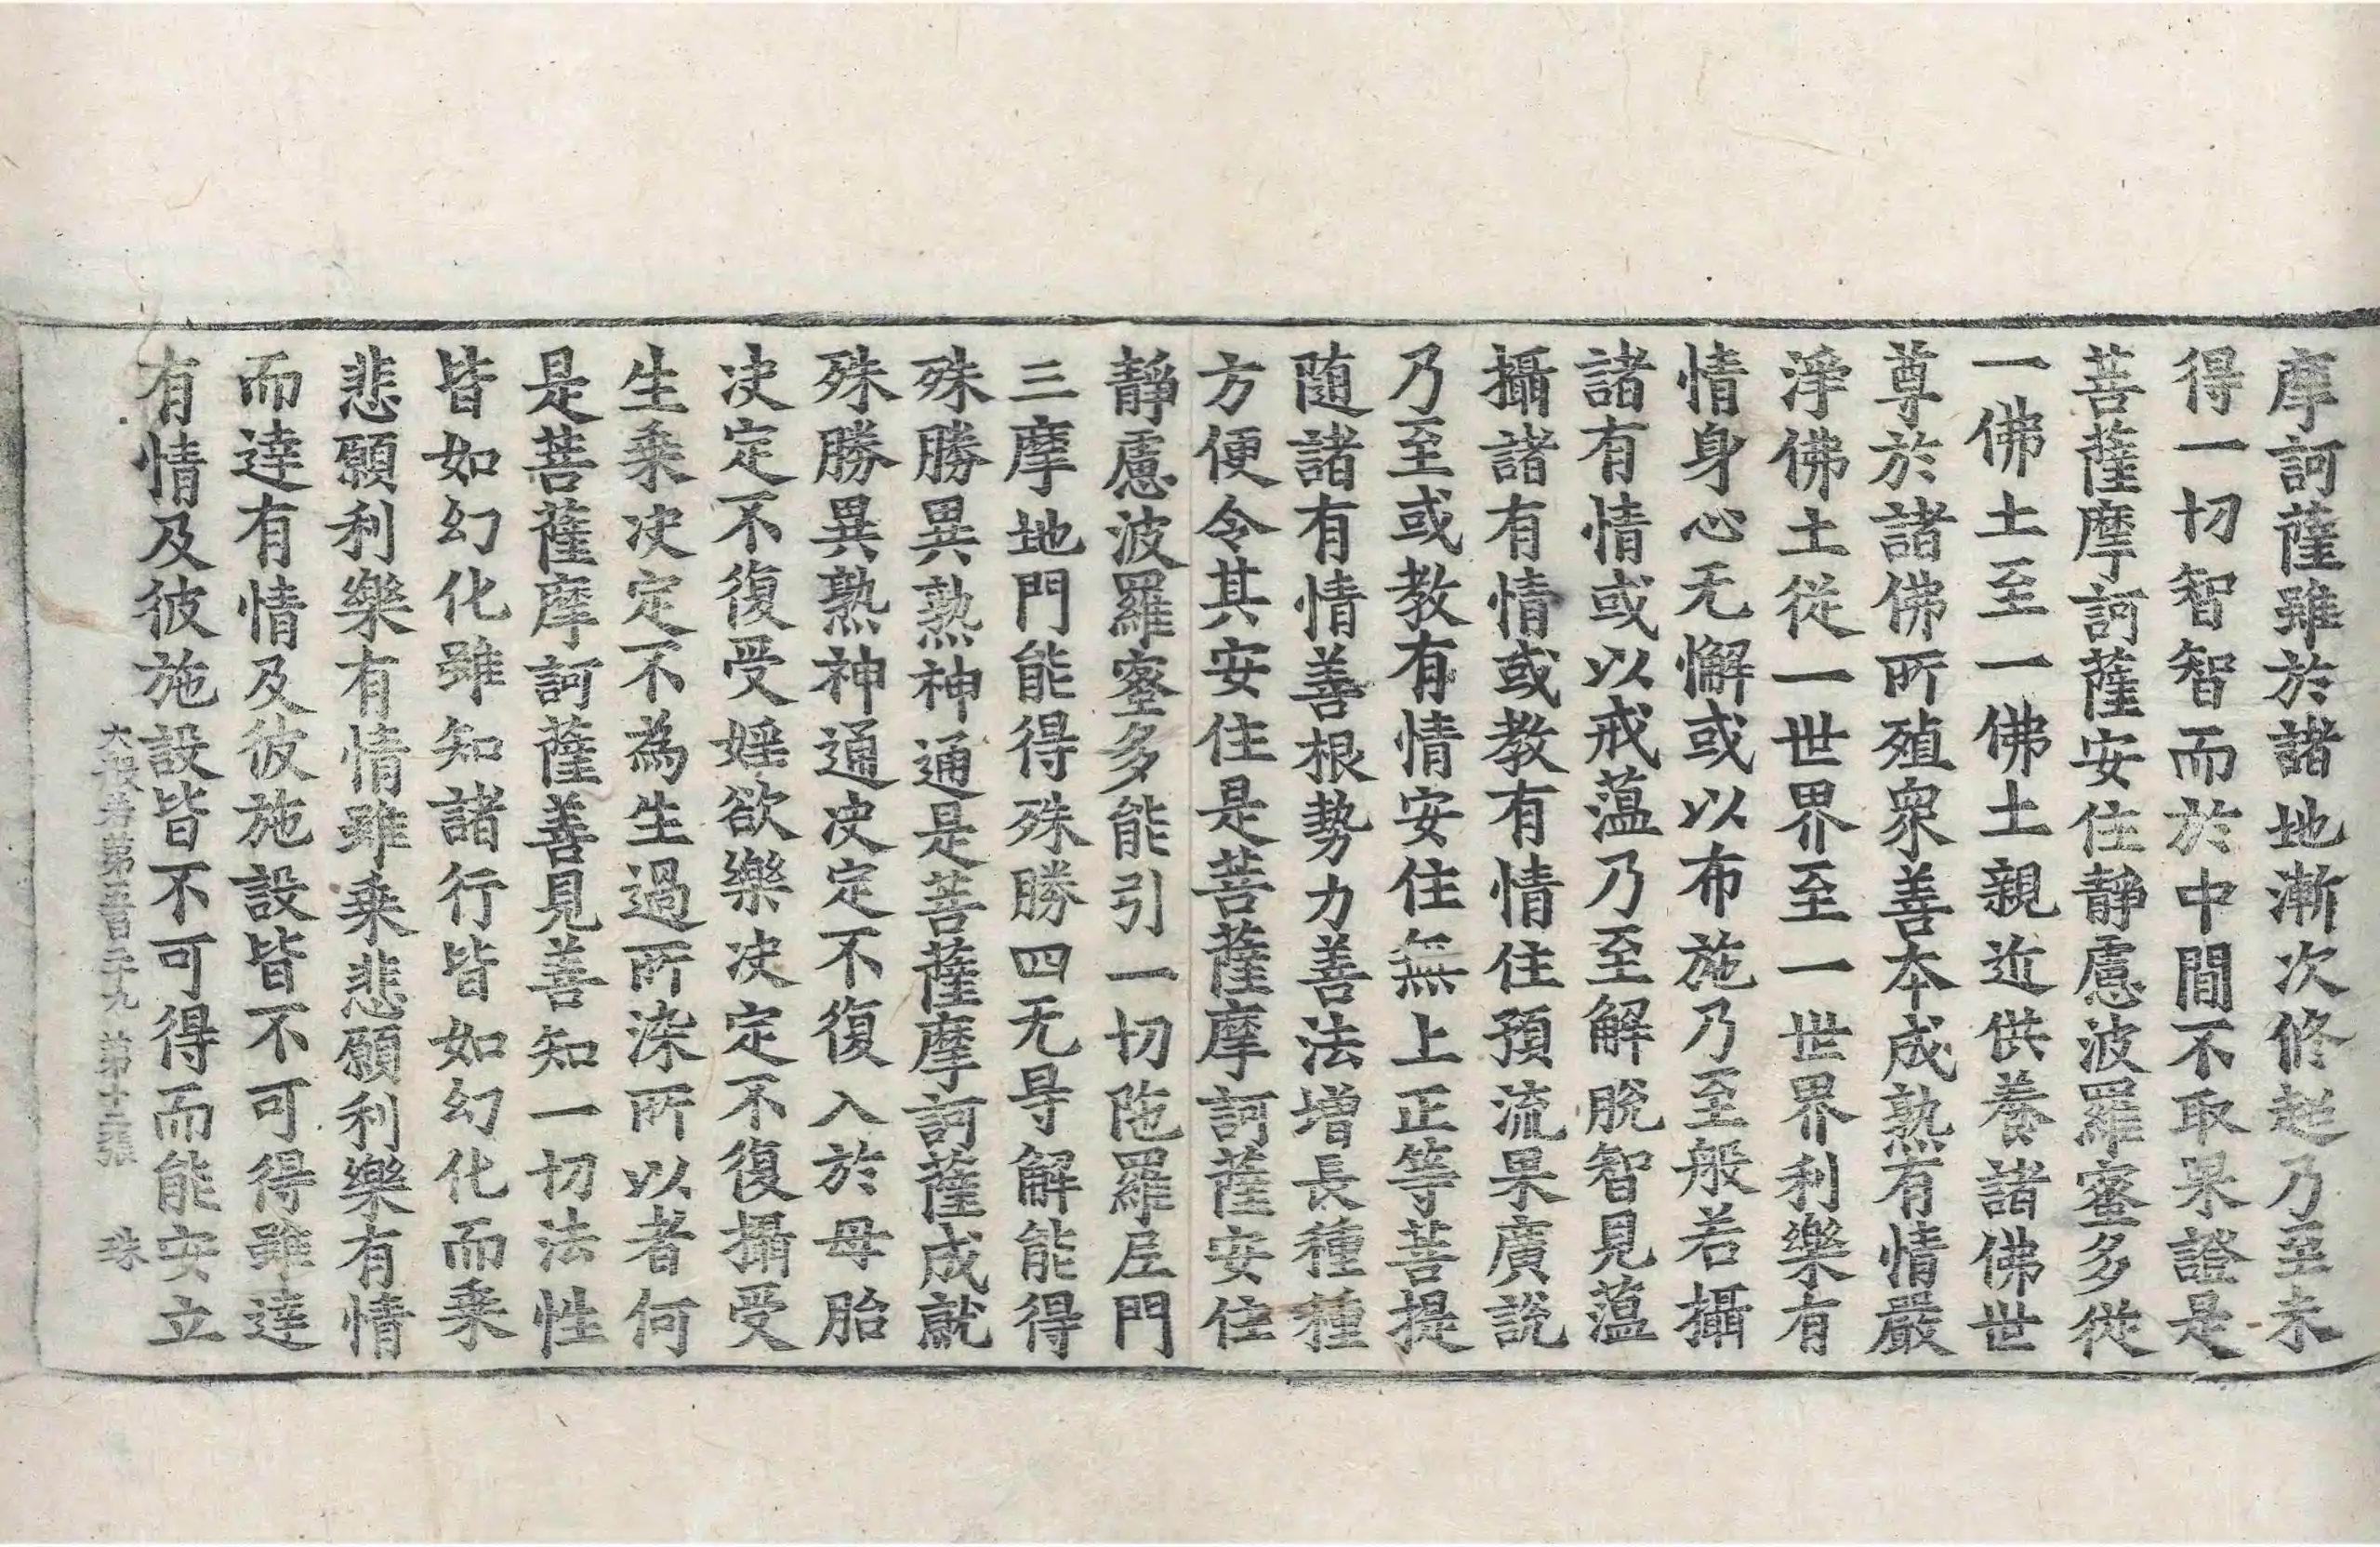 摩訶薩雖於諸地漸次修超乃至未
得一切智智而於中間不取果證是
菩薩摩訶薩安住靜慮波羅蜜多從
一佛土至一佛土親近供養諸佛世
尊於諸佛所殖衆善本成熟有情嚴
淨佛土從一世界至一世界利樂有
情身心无懈或以布施乃至般若攝
諸有情或以戒蘊乃至解脫智見蘊
攝諸有情或教有情住預流果廣說
乃至或教有情安住無上正等菩提
随諸有情善根勢力善法增長種種
方便令其安住是菩薩摩訶薩安住
靜慮波羅蜜多能引一切陁羅尼門
三摩地門能得殊勝四无㝵解能得
殊勝異熟神通是菩薩摩訶薩成就
殊勝異熟神通决定不復入於母胎
决定不復受婬欲樂决定不復攝受
生乗决定不為生過所染所以者何
是菩薩摩訶薩善見善知一切法性
皆如幻化雖知諸行皆如幻化而乗
悲願利樂有情雖乗悲願利樂有情
而達有情及彼施設皆不可得雖達
有情及彼施設皆不可得而能安立
大般若第五百二十九 第十二張 珠